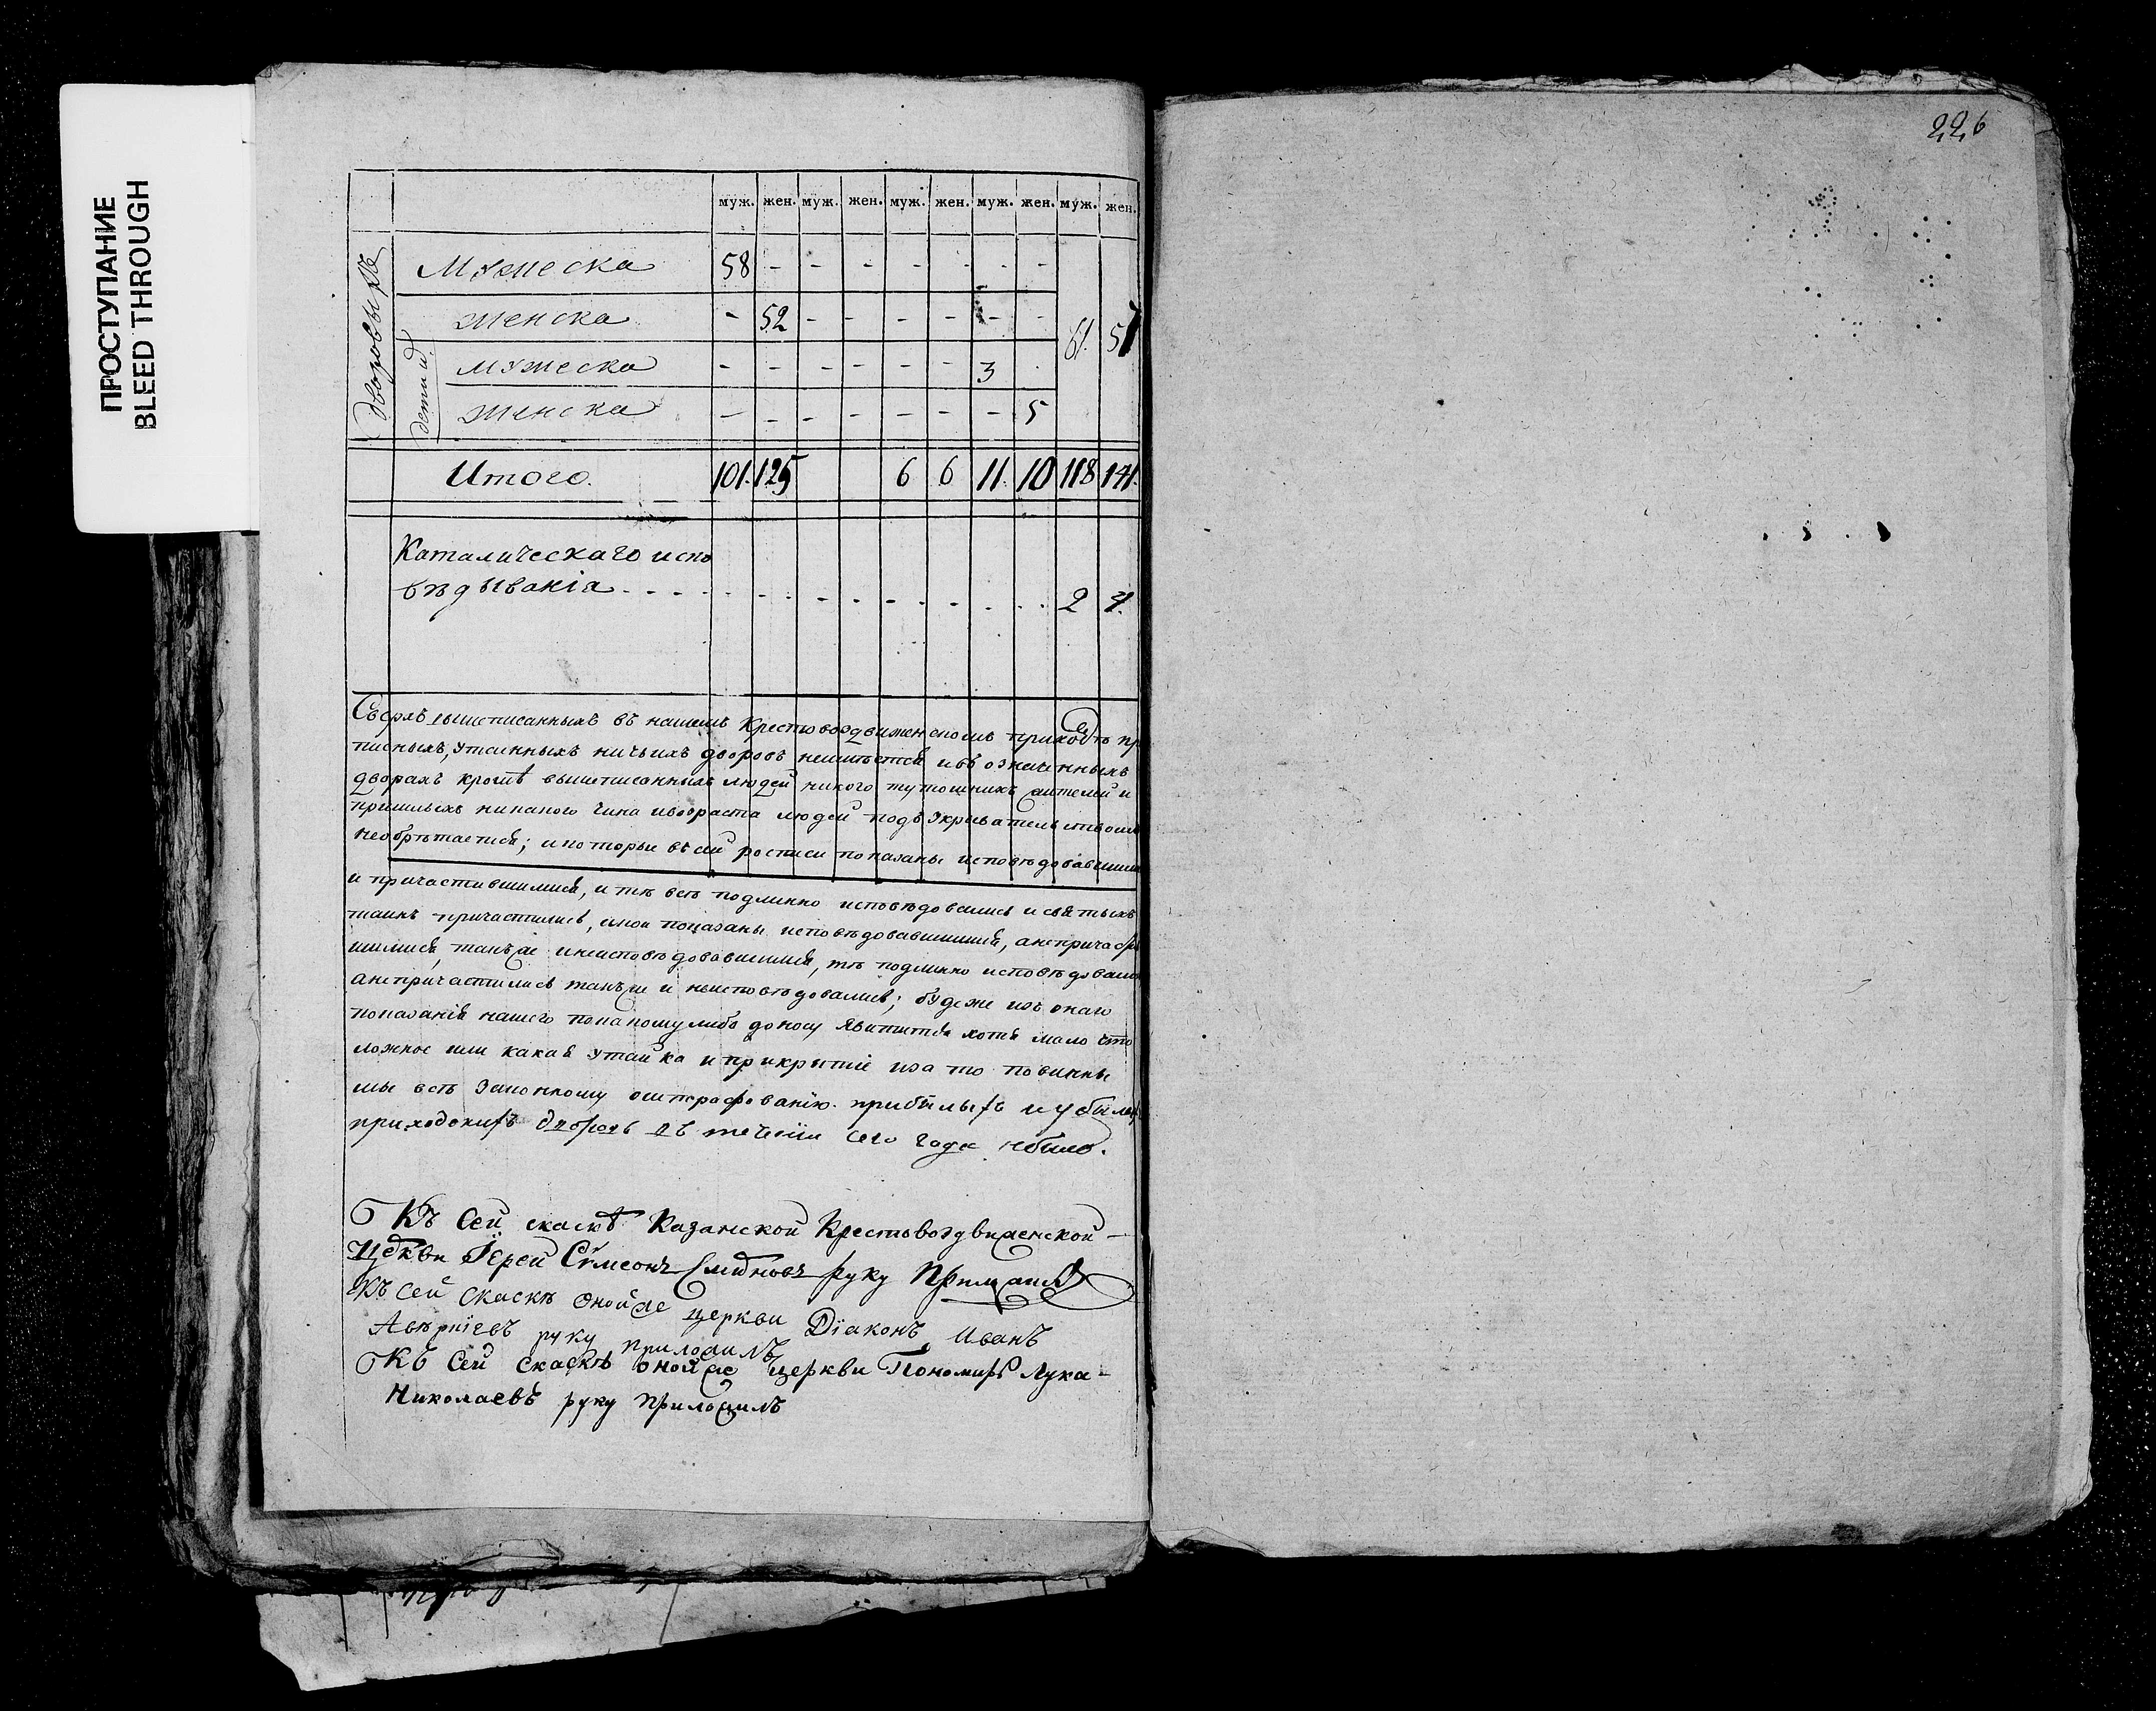 ПРОСТУПАНИЕ
BLEED THROUGH
226
муж. жен. муж. жен. муж. жен. муж. жен. муж. жен.
дворовыхъ
детей
Мужеска 58 - - - - - - -
женска - 52 - - - - - - 61. 57
мужеска - - - - - - 3 -
женска - - - - - - - 5
Итого. 101. 125 6 6 11. 10 118 141.
Каталическаго испо
вѣдыванія 2 4.
Сверхъ вышеписанныхъ въ нашемъ Крестовоздвиженскомъ приходѣ пр
писныхъ, утаенныхъ ничьихъ дворовъ неимѣется и въ означенныхъ
дворахъ кромѣ вышеписанныхъ людей никого тутошнихъ жителей и
пришлыхъ никакого чина и возраста людей подъ укривательствомъ
необрѣтается; и которые въ сей росписи показаны исповѣдовавшими
и причастившимися, и тѣ всѣ подлинно исповѣдовались и святыхъ
таинъ причастились, а кои показаны исповѣдовавшимися, анепричасти
шимися, такъже инеисповѣдовавшимися, тѣ подлинно исповѣдовались
анепричастились такъже и неисповѣдовались; будеже изъ онаго
показанія нашего покакомулибо доносу явитится хотя мало что
ложное или какая утайка и прикрытіе иза то повинны
мы всѣ законному оштрафованію. прибылыхъ и убылыхъ
приходскихъ дворовъ въ теченіи сего года небыло.
Къ сей скаскѣ Казанской Крестовоздвиженской
Церкви Іерей Сѵмеонъ Смирновъ руку Приложилъ
Къ сей скаскѣ онойже церкви Діаконъ Иванъ
Авѣркіевъ руку приложилъ
Къ сей скаскѣ онойже церкви Пономарь Лука
Николаевъ руку приложилъ